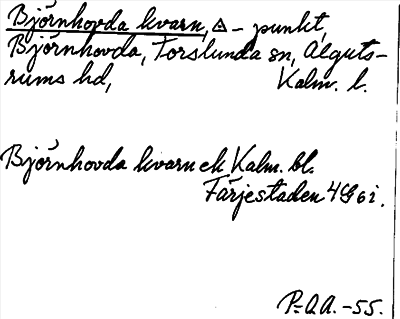 Björnhovda kvarn, △ – punkt,
Björnhovda, Torslunda sn, Alguts-
rums hd, Kalm. l.
Björnhovda kvarn ek Kalm. bl.
Färjestaden 4G 6i.
P=Q A. -55.